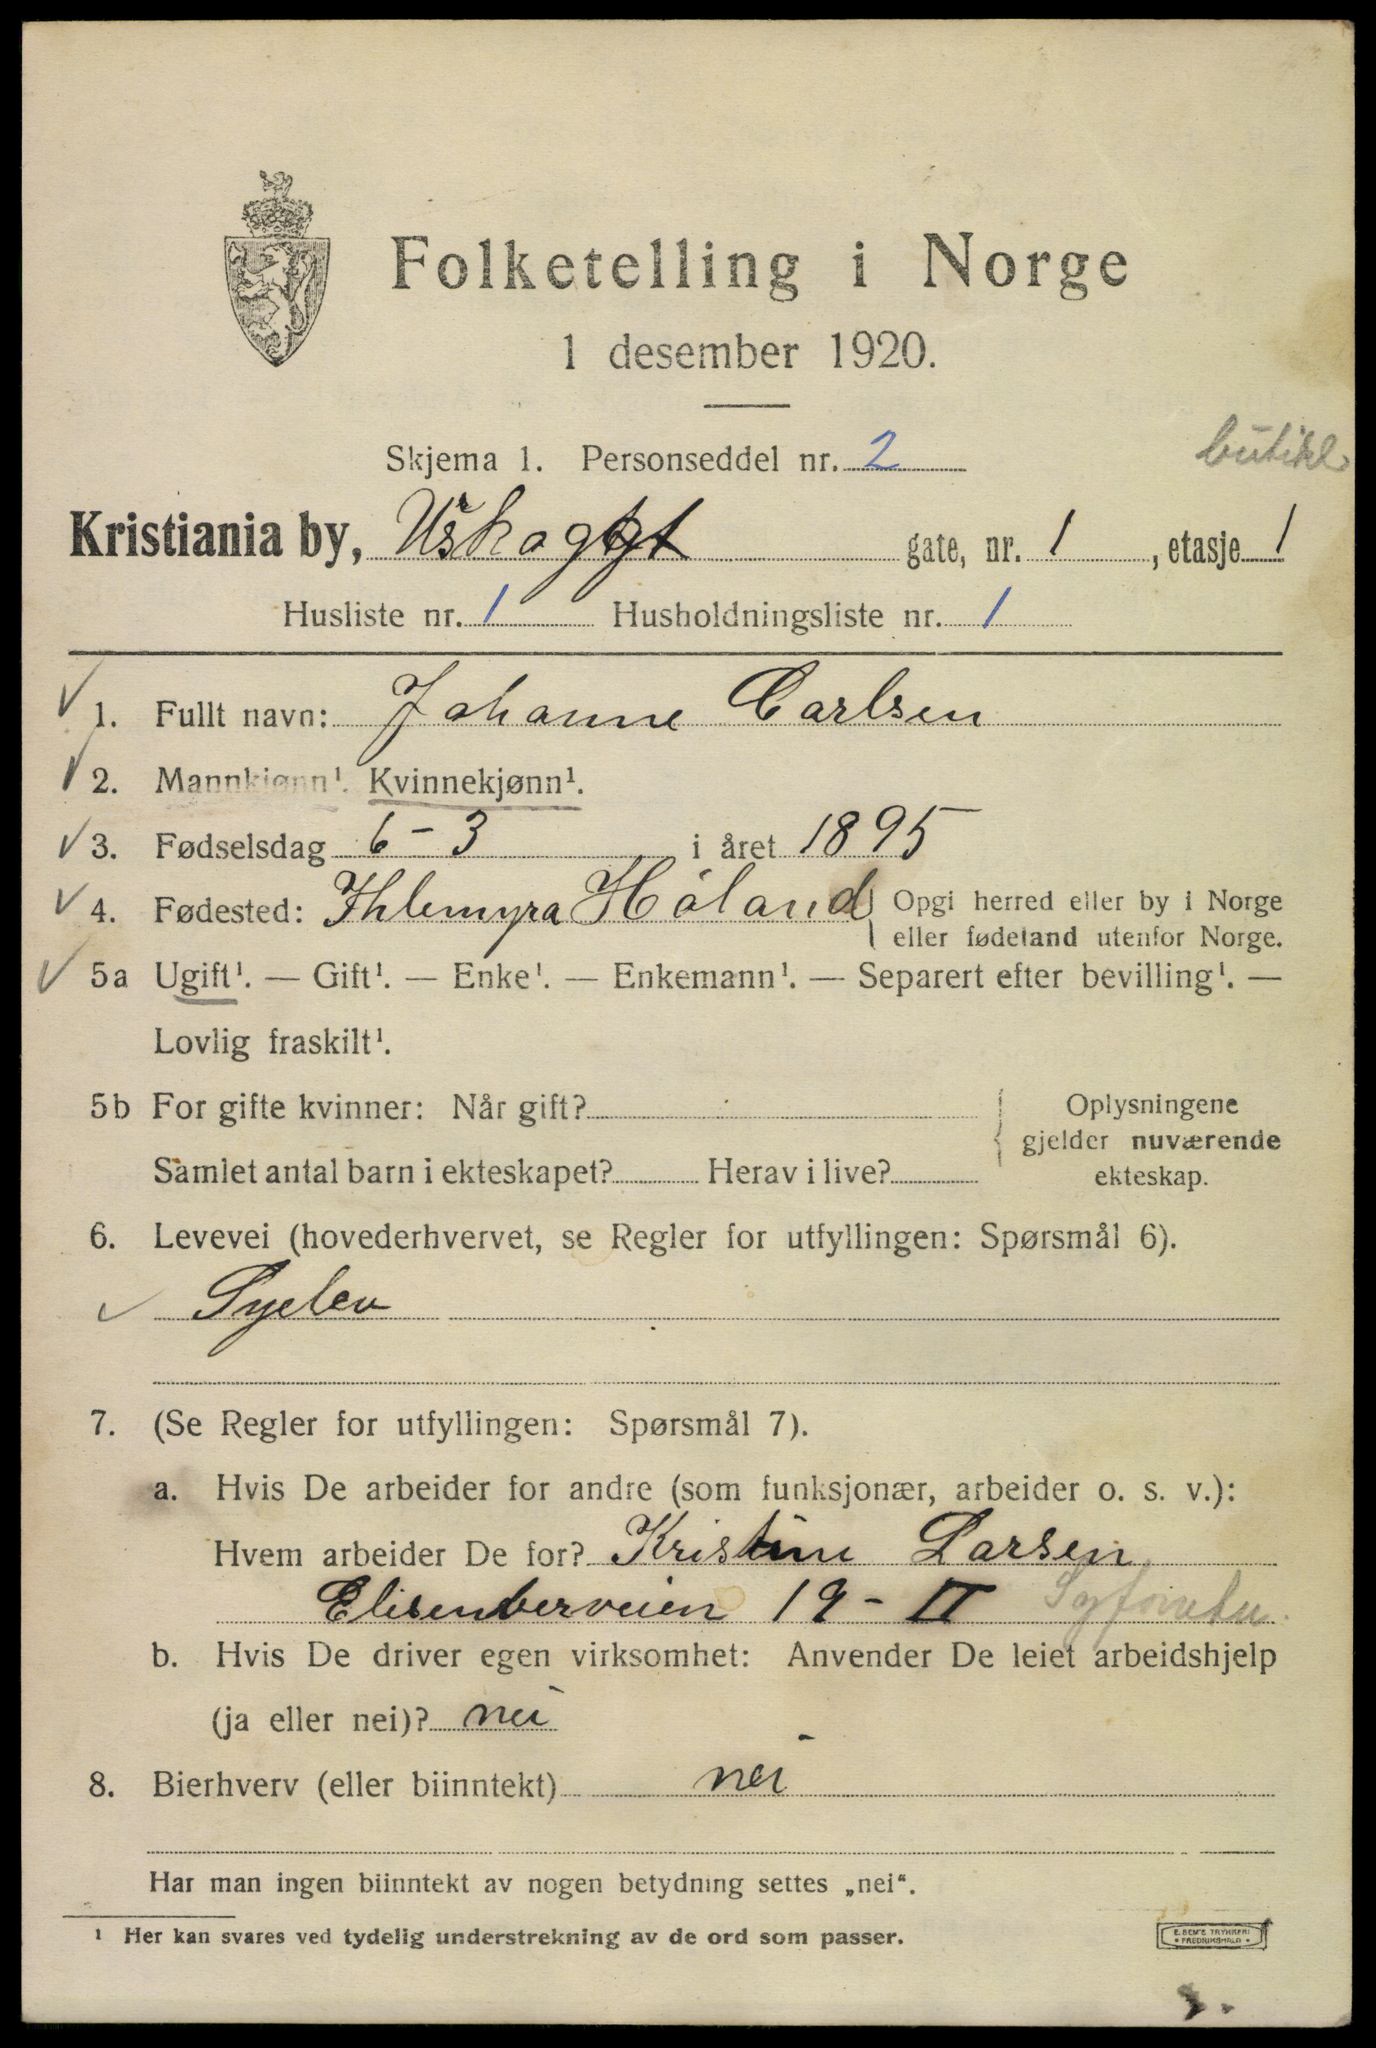 Folketelling i Norge
1 desember 1920.
Skjema 1. Personseddel nr. 2
butikk
Kristiania by, Uskogt gate, nr. 1, etasje 1
Husliste nr. 1 Husholdningsliste nr. 1
1. Fullt navn: Johanne Carlsen
2. Mannkjønn¹. Kvinnekjønn¹.
3. Fødselsdag 6-3 i året 1895
4. Fødested: Ihlemyra Høland { Opgi herred eller by i Norge
eller fødeland utenfor Norge.
5a Ugift¹. — Gift¹. — Enke¹. — Enkemann¹. — Separert efter bevilling¹. —
Lovlig fraskilt¹.
5b For gifte kvinner: Når gift?
Samlet antal barn i ekteskapet? Herav i live?
Oplysningene
gjelder nuværende
ekteskap.
6. Levevei (hovederhvervet, se Regler for utfyllingen: Spørsmål 6).
Syelev
7. (Se Regler for utfyllingen: Spørsmål 7).
a. Hvis De arbeider for andre (som funksjonær, arbeider o. s. v.):
Hvem arbeider De for? Kristine Larsen
Elisenberveien 19 - II
b. Hvis De driver egen virksomhet: Anvender De leiet arbeidshjelp
(ja eller nei)? nei
8. Bierhverv (eller biinntekt) nei
Har man ingen biinntekt av nogen betydning settes „nei“.
¹ Her kan svares ved tydelig understrekning av de ord som passer.
E. SEM'S TRYKKERI
• FREDRIKSHALD •